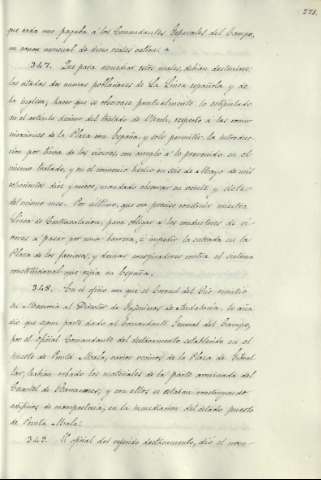 221.
que cada uno pagaba á los Comandantes Generales del Campo,
un canon mensual de doce reales vellon.
347. Que para remediar estos males, debian destruirse
las citadas dos nuevas poblaciones de La Linea española y de
la inglesa; hacer que se observase puntualmente lo estipulado
en el articulo decimo del tratado de Utrech, respecto á las comu-
nicaciones de la Plaza con España y solo permitir la introduc-
cion por tierra de los viveres, con arreglo á lo prevenido en el
mismo tratado, y en el convenio hecho en seis de Mayo de mil
setecientos diez y nueve, mandado observar en veinte y siete
del mismo mes. Por ultimo, que era preciso construir nuestra
Linea de Contravalacion, para obligar á los conductores de vi-
veres a pasar por una barrera, é impedir la entrada en la
Plaza de los facciosos, y demas conspiradores contra el sistema
constitucional que regia en España.
348. En el oficio con que el Coronel del Rio remitió
su Memoria al Director de Ingenieros de Andalucia, le aña-
dia que segun parte dado al Comandante General del Campo,
por el oficial Comandante del destacamento establecido en el
puesto de Punta Mala, varios vecinos de la Plaza de Gibral-
tar, habian robado los materiales de la parte arruinada del
Cuartel de Buenavista; y con ellos se estaban construyendo
edificios de mamposteria, en la inmediacion del citado puesto
de Punta Mala.
349. El oficial del referido destacamento, dió el nom-